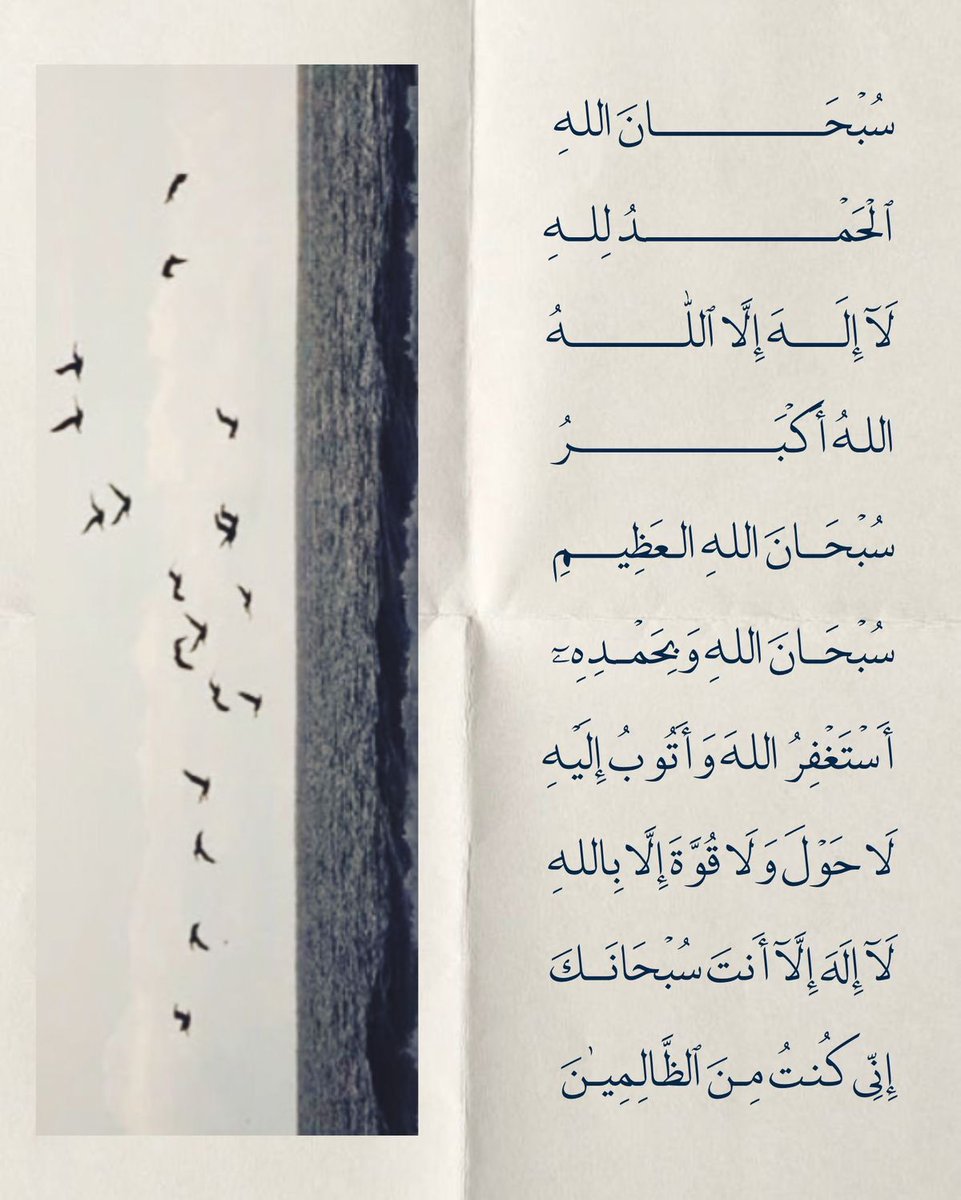 سُبْحَانَ اللهِ
ٱلْحَمْدُ لِلهِ
لَآ إِلَهَ إِلَّا ٱللّٰهُ
اللهُ أَكْبَرُ
سُبْحَانَ اللهِ العَظِيمِ
سُبْحَانَ اللهِ وَبِحَمْدِهِۓ
أَسْتَغْفِرُ اللهَ وَأَتُوبُ إِلَيْهِ
لَا حَوْلَ وَلَا قُوَّةَ إِلَّا بِاللهِ
لَآ إِلَهَ إِلَّآ أَنتَ سُبْحَانَكَ
إِنِّي كُنتُ مِنَ ٱلظَّالِمِيْنَ